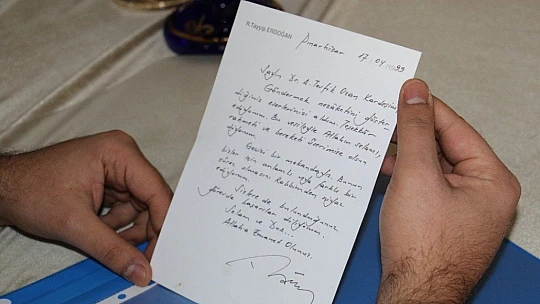 R.Tayyip ERDOĞAN
Pınarhisar 17/04/1999
Sayın Dr. A. Tevfik Ozan Kardeşim
Göndermek nezaketini göster-
diğiniz eserlerinizi aldım. Teşekkür
ediyorum. Bu vesileyle Allahın selamı,
rahmeti ve bereketi üzerinize olsun
diyorum.
Geçici bir mekandayız. Bunun,
bizler için anlamlı veya farklı bir
süreç olmasını Rabbimden niyaz
ediyorum.
Sizlere de bulunduğunuz
görevde başarılar diliyorum.
Selam ve Dua...
Allaha Emanet Olunuz.